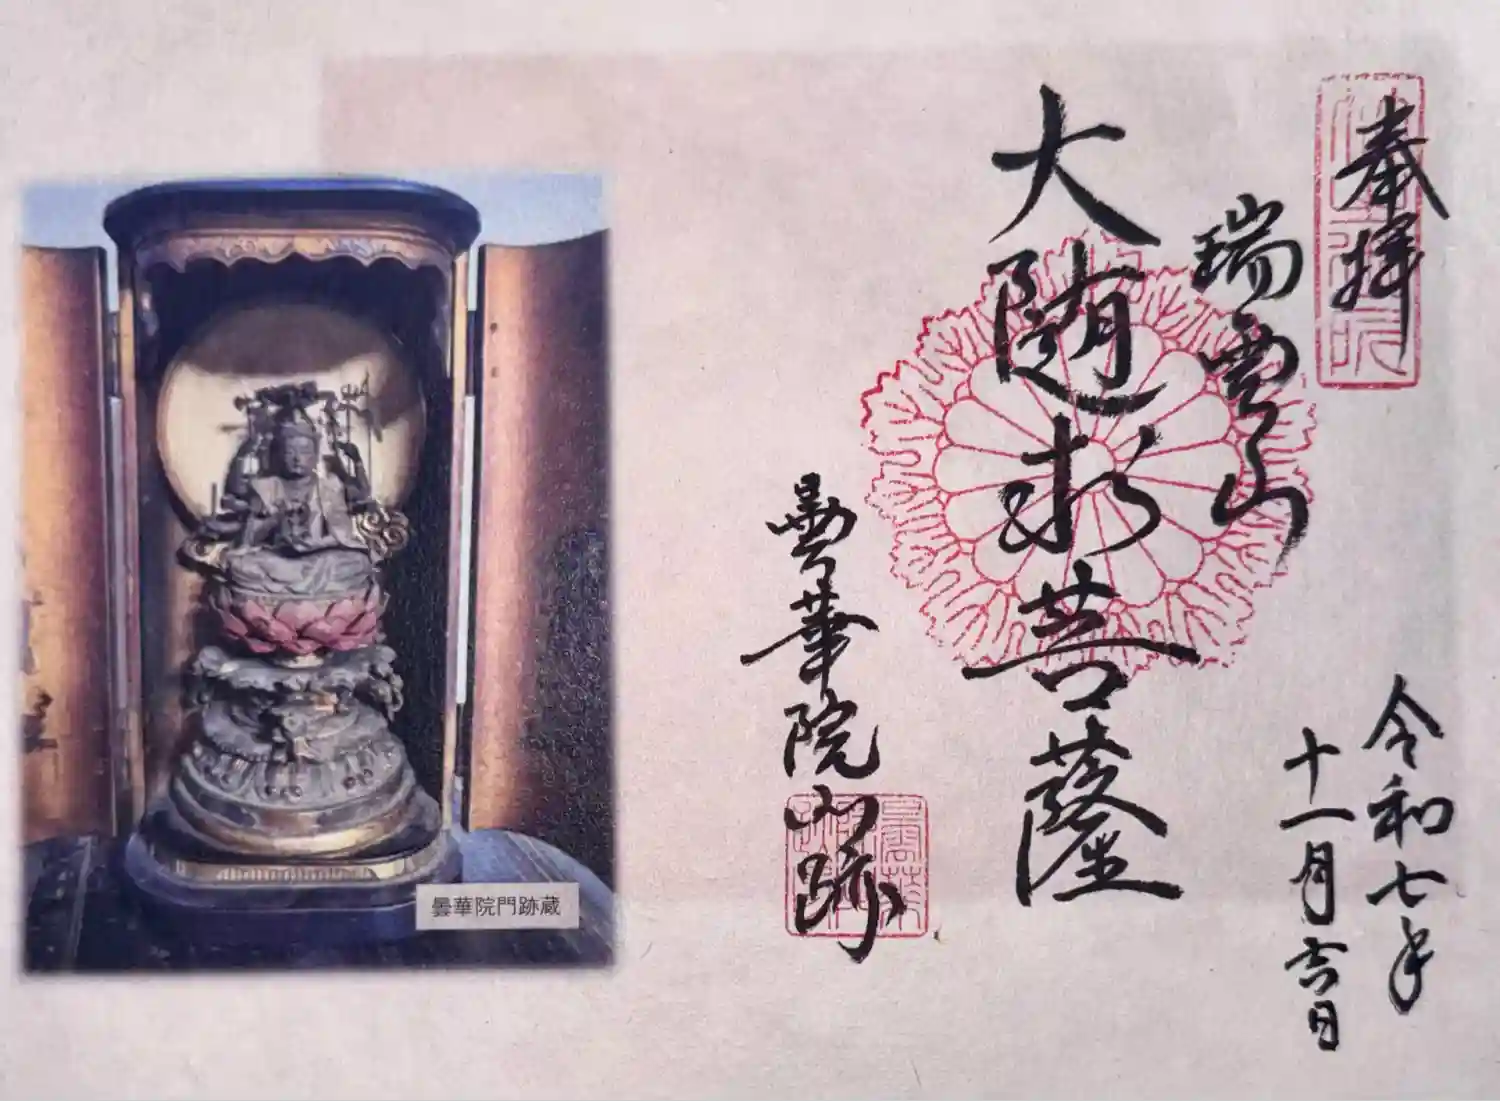 奉拝
瑞雲山
大随求菩薩
曇華院門跡
令和七年
十一月吉日
曇華院門跡蔵